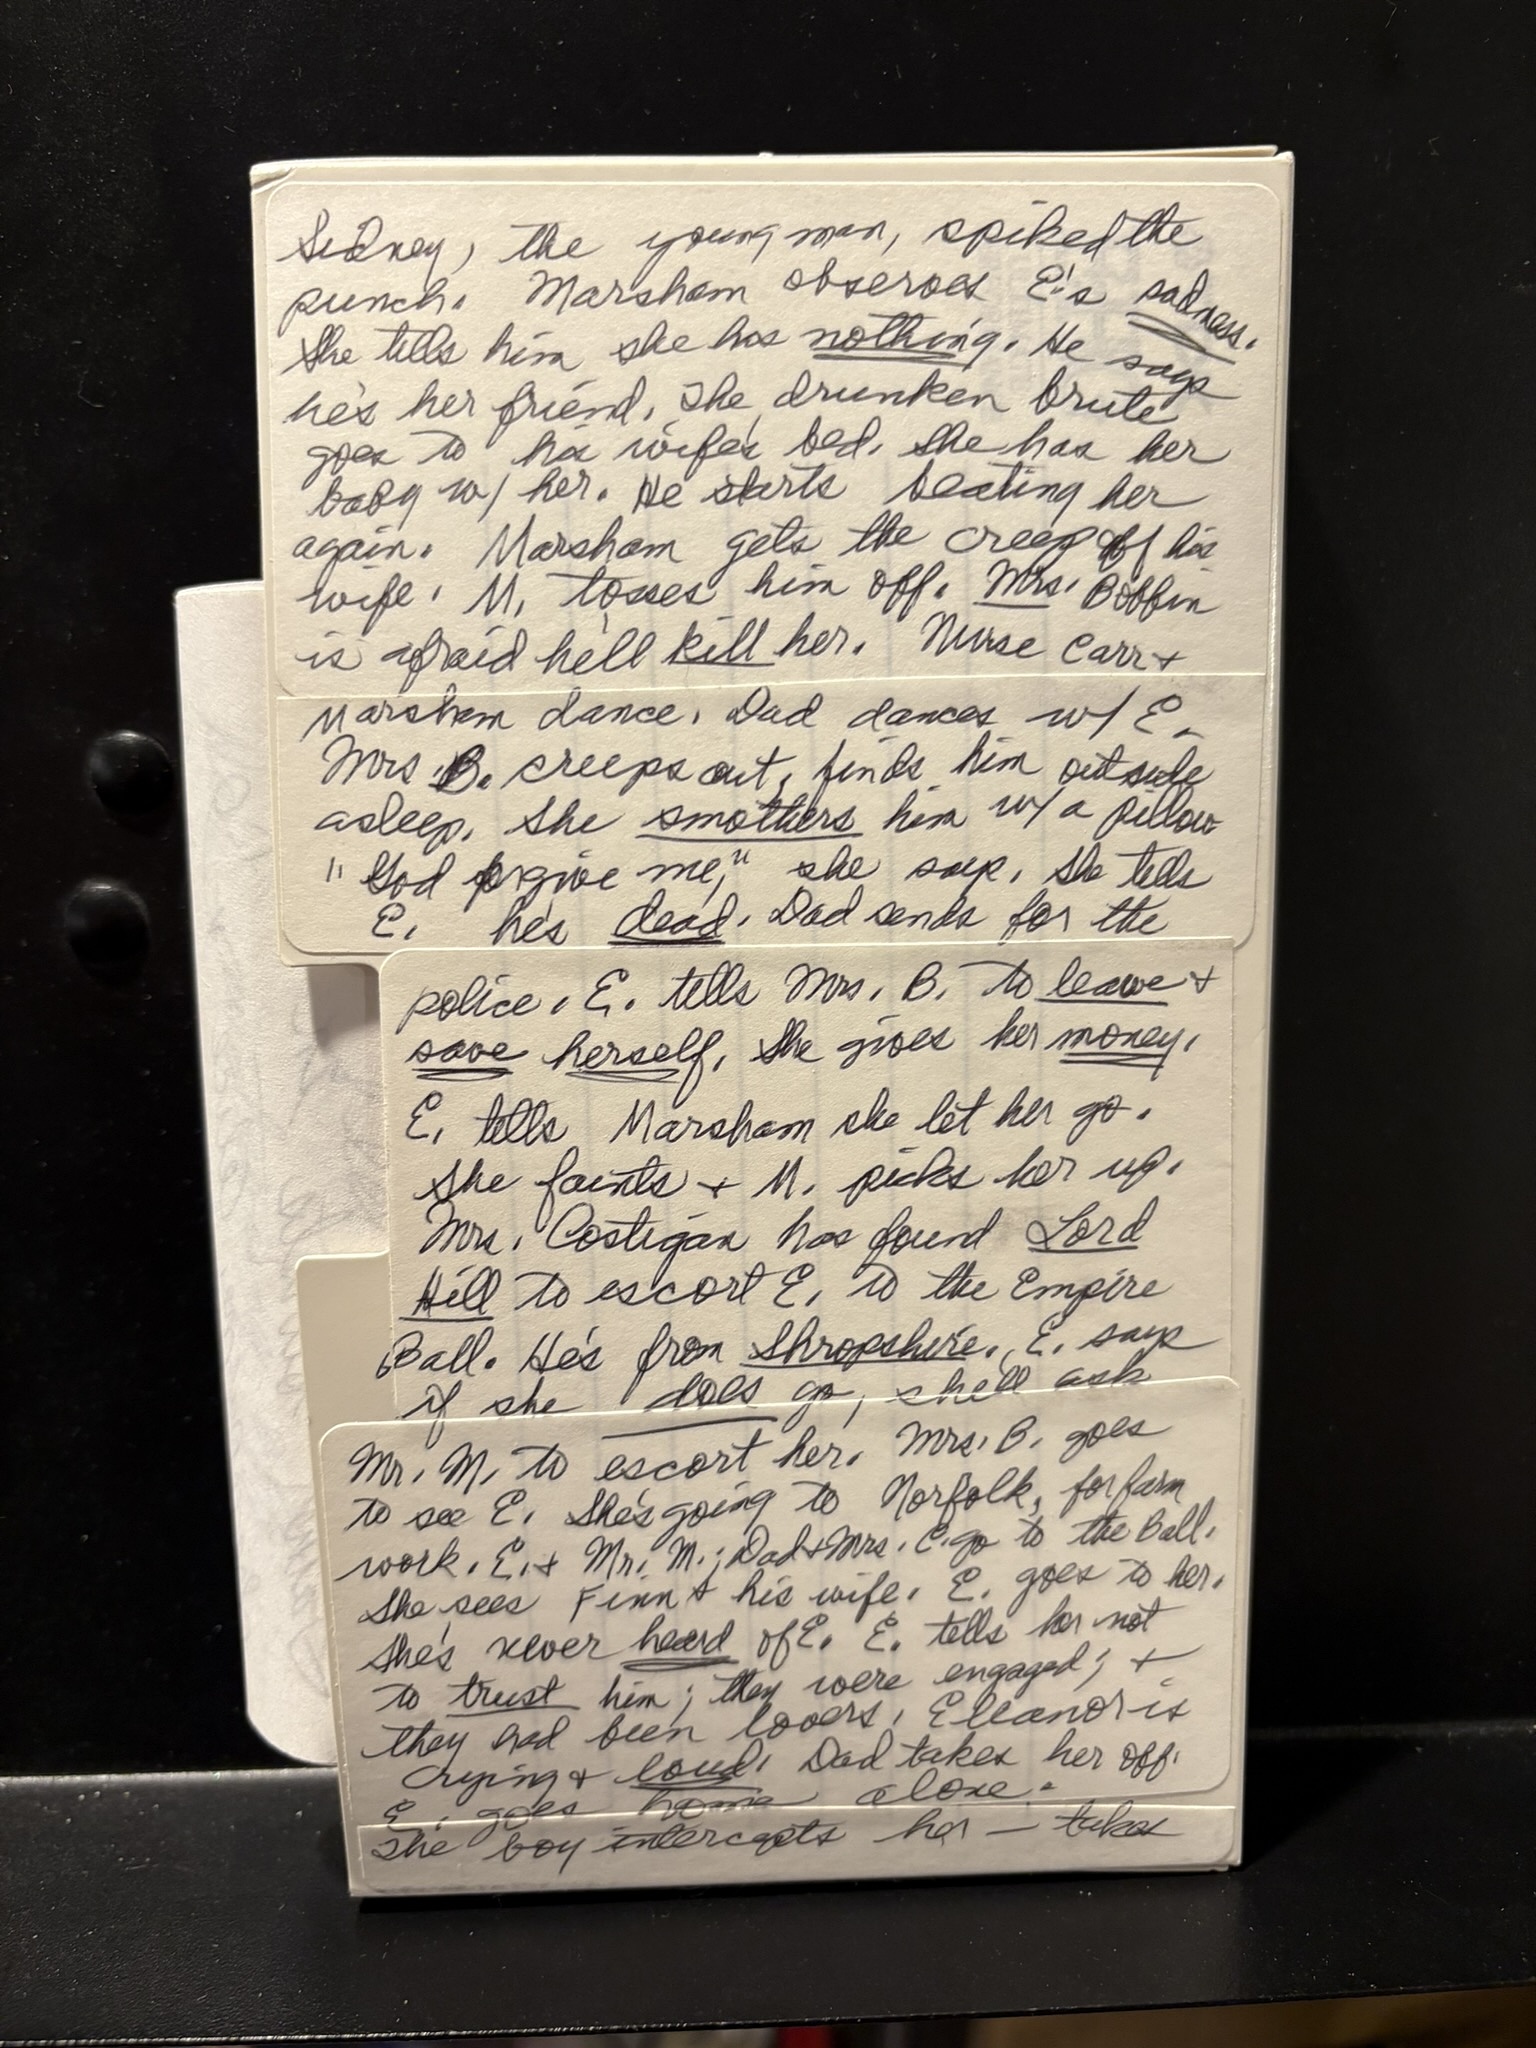 Sidney, the young man, spiked the
punch. Marsham observes E's sadness.
She tells him she has nothing. He says
he's her friend. The drunken brute
goes to his wife's bed. She has her
baby w/ her. He starts beating her
again. Marsham gets the creep off his
wife. M. tosses him off. Mrs. Boffin
is afraid he'll kill her. Nurse Carr +
Marsham dance. Dad dances w/ E.
Mrs. B. creeps out, finds him outside
asleep. She smothers him w/ a pillow
"God forgive me," she says. She tells
E. he's dead. Dad sends for the
police. E. tells Mrs. B. to leave +
save herself. She gives her money.
E. tells Marsham she let her go.
She faints + M. picks her up.
Mrs. Costigan has found Lord
Hill to escort E. to the Empire
Ball. He's from Shropshire. E. says
if she does go, she'll ask
Mr. M. to escort her. Mrs. B. goes
to see E. She's going to Norfolk, for farm
work. E. + Mr. M.; Dad + Mrs. C. go to the Ball.
She sees Finn + his wife. E. goes to her.
She's never heard of E. E. tells her not
to trust him; they were engaged; +
they had been lovers. Eleanor is
crying + loud. Dad takes her off.
E. goes home alone.
The boy intercepts her — takes